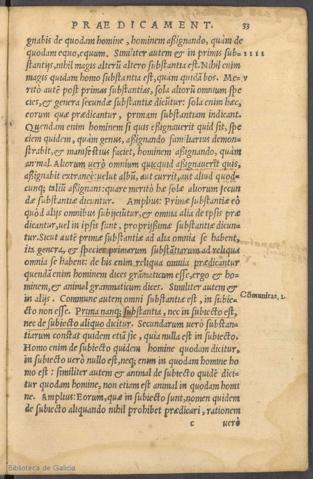 PRÆDICAMENT. 53
gnabis de quodam homine, hominem aßignando, quàm de
quodam equo, equum. Similiter autem & in primis sub- IIII
stantijs, nihil magis alterū altero substantia est. Nihil enim
magis quidam homo substantia est, quàm quidā bos. Me-
ritò autē post primas substantias, sola aliorū omnium spe
cies, & genera secundæ substantiæ dicūtur: sola enim hæc,
eorum quæ prædicantur, primam substantiam indicant.
Quendam enim hominem si quis aßignauerit quid sit, spe
ciem quidem, quàm genus, aßignando familiarius demon-
strabit, & manifestius faciet, hominem aßignando, quàm
animal. Aliorum uerò omnium quicquid aßignauerit quis,
aßignabit extraneè: uelut albū, aut currit, aut aliud quod-
cunq; taliū aßignans: quare meritò hæ solæ aliorum secun
dæ substantiæ dicuntur. Ampliùs: Primæ substantiæ eò
quòd alijs omnibus subijciūtur, & omnia alia de ipsis præ
dicantur, uel in ipsis sunt, proprijßimæ substantiæ dicun-
tur. Sicut autē primæ substantiæ ad alia omnia se habent,
ita genera, & species primarum substātiarum ad reliqua
omnia se habent: de his enim reliqua omnia prædicantur
quendā enim hominem dices grāmaticum esse, ergo & ho-
minem, & animal grammaticum dices. Similiter autem &
in alijs. Commune autem omni substantiæ est, in subie- Cōmunitas, 1.
cto non esse. Prima nanq; substantia, nec in subiecto est,
nec de subiecto aliquo dicitur. Secundarum uerò substan-
tiarum constat quidem etiā sic, quia nulla est in subiecto.
Homo enim de subiecto quidem homine quodam dicitur,
in subiecto uerò nullo est, neq; enim in quodam homine ho
mo est: similiter autem & animal de subiecto quidē dici-
tur quodam homine, non etiam est animal in quodam homi
ne. Ampliùs: Eorum, quæ in subiecto sunt, nomen quidem
de subiecto aliquando nihil prohibet prædicari, rationem
c uerò
Biblioteca de Galicia